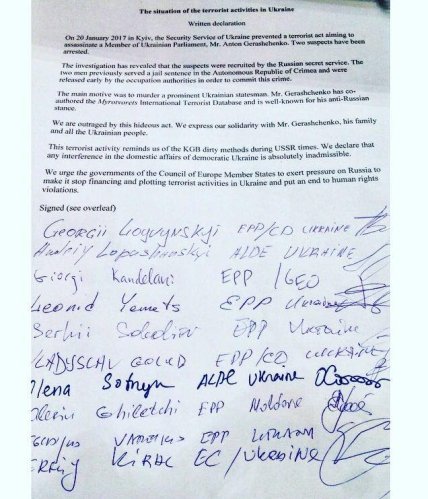 The situation of the terrorist activities in Ukraine
Written declaration
On 20 January 2017 in Kyiv, the Security Service of Ukraine prevented a terrorist act aiming to
assassinate a Member of Ukrainian Parliament, Mr. Anton Gerashchenko. Two suspects have been
arrested.
The investigation has revealed that the suspects were recruited by the Russian secret service. The
two men previously served a jail sentence in the Autonomous Republic of Crimea and were
released early by the occupation authorities in order to commit this crime.
The main motive was to murder a prominent Ukrainian statesman. Mr. Gerashchenko has co-
authored the Myrotvorets International Terrorist Database and is well-known for his anti-Russian
stance.
We are outraged by this hideous act. We express our solidarity with Mr. Gerashchenko, his family
and all the Ukrainian people.
This terrorist activity reminds us of the KGB dirty methods during USSR times. We declare that
any interference in the domestic affairs of democratic Ukraine is absolutely inadmissible.
We urge the governments of the Council of Europe Member States to exert pressure on Russia to
make it stop financing and plotting terrorist activities in Ukraine and put an end to human rights
violations.
Signed (see overleaf)
Georgii Logvynskyi EPP/CD UKRAINE
Andriy Lopushanskyi ALDE UKRAINE
Giorgi Kandelaki EPP /GEO
Leonid Yemets EPP Ukraine
Serhii Sobolev EPP Ukraine
EPP/CD UKRAINE
Olena Sotnyk ALDE Ukraine
Ghiletchi EPP Moldova
EPP
EC/UKRAINE